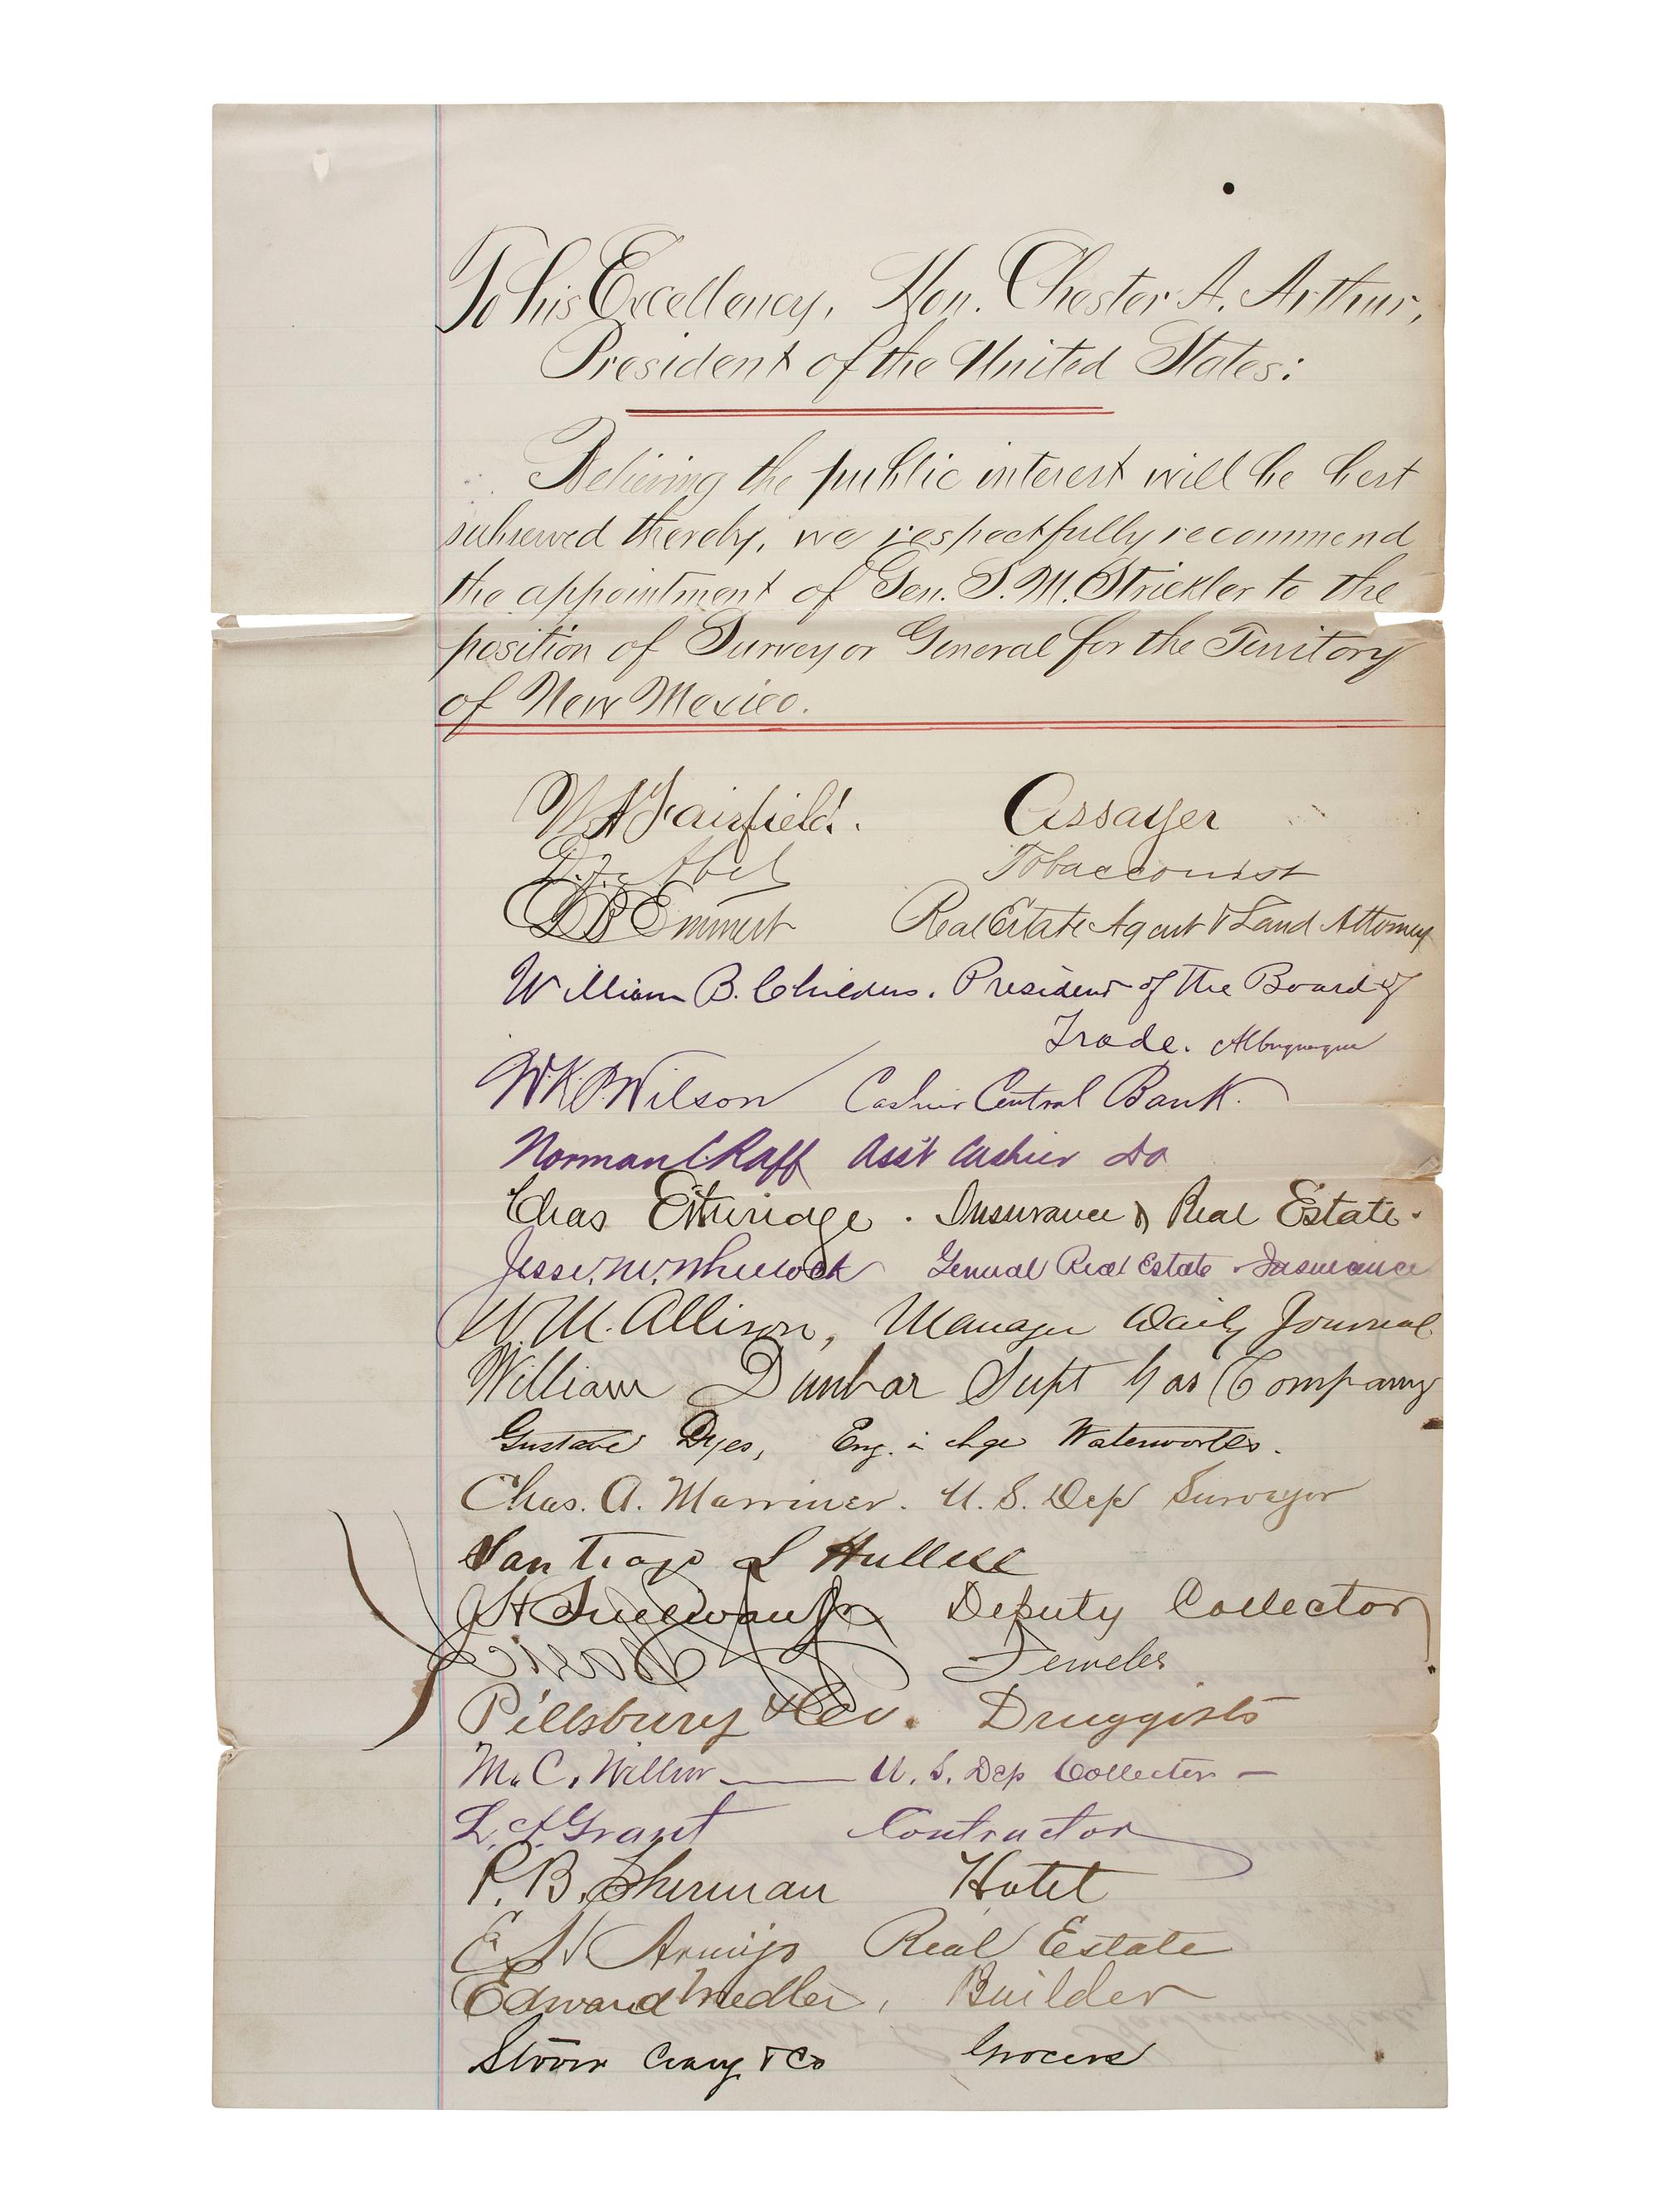 To his Excellency, Hon. Chester A. Arthur,
President of the United States:
Believing the public interest will be best
subserved thereby, we respectfully recommend
the appointment of Gen. S. M. Strickler to the
position of Surveyor General for the Territory
of New Mexico.
W A Fairfield. Assayer
Abel Tobacconist
D B Emmert Real Estate Agent & Land Attorney
William B. Childers. President of the Board of
Trade. Albuquerque
W.K.P. Wilson Cashier Central Bank.
Norman C Raff Ass't Cashier Do
Chas Etheridge. Insurance & Real Estate.
Jesse. M. Wheelock General Real Estate & Insurance
W. M. Allison, Manager Daily Journal
William Dunbar Supt Gas Company
Gustave Dyes, Eng. in chge Waterworks.
Chas. A. Marriner. U. S. Dep Surveyor
Santiago L Hubbell
Deputy Collector
Jeweler
Pillsbury & Co. Druggists
M. C. U. S. Dep Collector —
L. A. Grant Contractor
P. B. Sherman Hotel
E Armijo Real Estate
Edward Medler, Builder
Stover Crary & Co Grocers